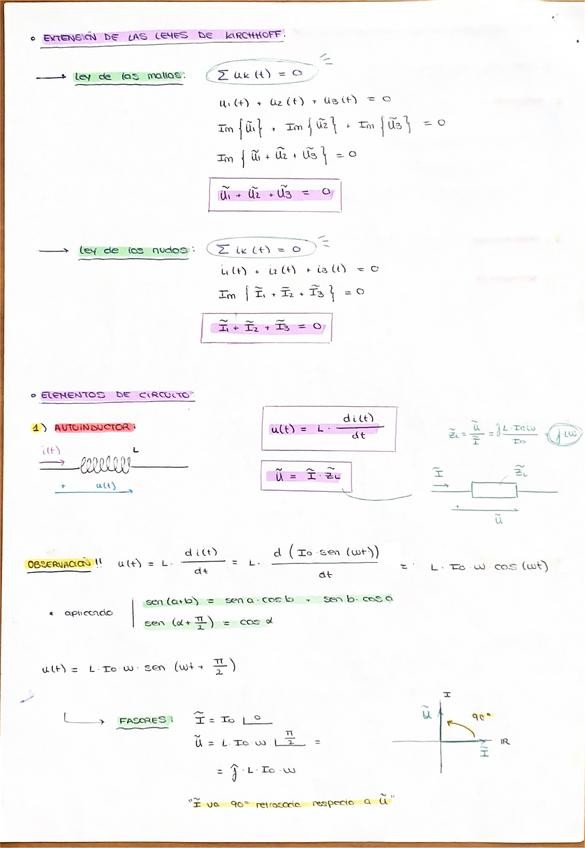 ° EXTENSIÓN DE LAS LEYES DE KIRCHHOFF:
→ Ley de las mallas: Σ uk (t) = 0
u1(t) + u2(t) + u3(t) = 0
Im {Ũ1} + Im {Ũ2} + Im {Ũ3} = 0
Im {Ũ1 + Ũ2 + Ũ3} = 0
Ũ1 + Ũ2 + Ũ3 = 0
→ Ley de los nudos: Σ ik (t) = 0
i1(t) + i2(t) + i3(t) = 0
Im {Ĩ1 + Ĩ2 + Ĩ3} = 0
Ĩ1 + Ĩ2 + Ĩ3 = 0
° ELEMENTOS DE CIRCUITO
1) AUTOINDUCTOR:
i(t) L
+ u(t)
u(t) = L · di(t)/dt
Ũ = Ĩ · Z̃L
Z̃L = Ũ/Ĩ = j L·I0ω/I0 = jLω
Ĩ Z̃L
+ Ũ
OBSERVACIÓN!! u(t) = L · di(t)/dt = L · d (I0 · sen (ωt))/dt = L · I0 ω cos (ωt)
• aplicando
sen (a+b) = sen a · cos b + sen b · cos a
sen (α + π/2) = cos α
u(t) = L · I0 ω · sen (ωt + π/2)
→ FASORES: Ĩ = I0 ∠0
Ũ = L I0 ω ∠π/2 =
= ĵ · L · I0 · ω
I
Ũ 90°
Ĩ IR
"Ĩ va 90° retrasada respecto a Ũ"